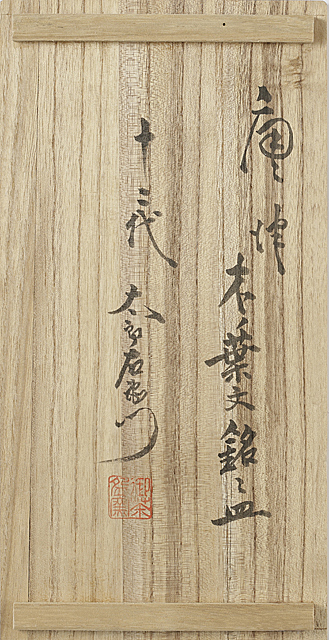 唐津
木ノ葉文銘々皿
十三代
太郎右衛門